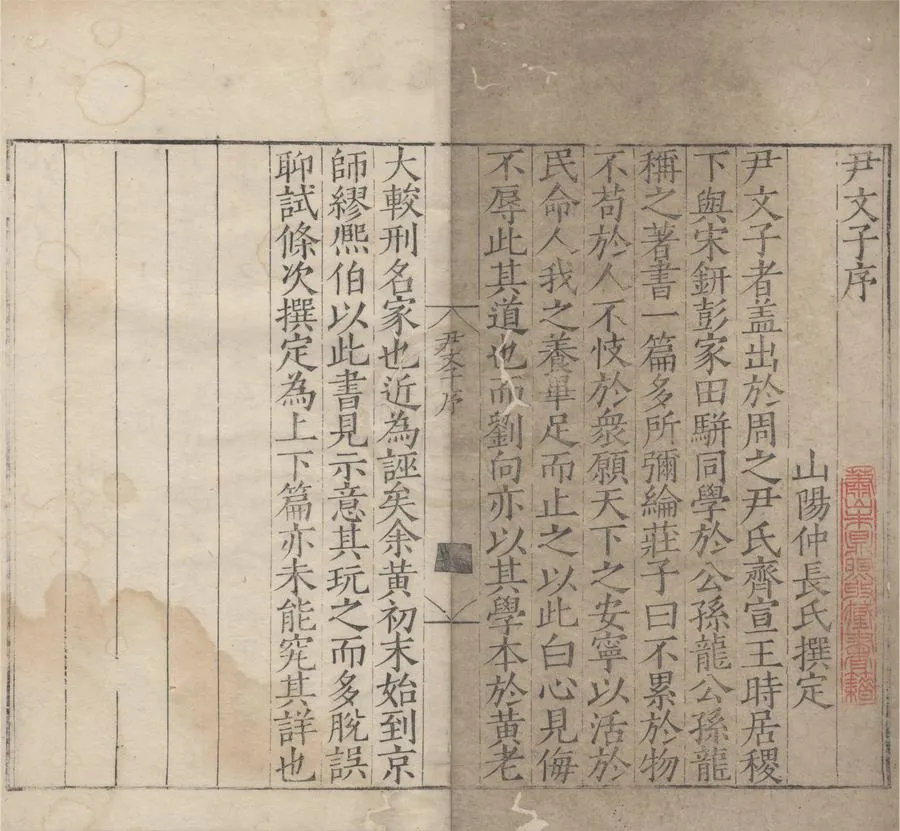 尹文子序
山陽仲長氏撰定
尹文子者蓋出於周之尹氏齊宣王時居稷
下與宋鈃彭家田駢同學於公孫龍公孫龍
稱之著書一篇多所彌綸莊子曰不累於物
不苟於人不忮於衆願天下之安寧以活於
民命人我之養畢足而止之以此白心見侮
不辱此其道也而劉向亦以其學本於黃老
尹文子序
大較刑名家也近為誣矣余黃初末始到京
師繆熈伯以此書見示意其玩之而多脫誤
聊試條次撰定為上下篇亦未能究其詳也